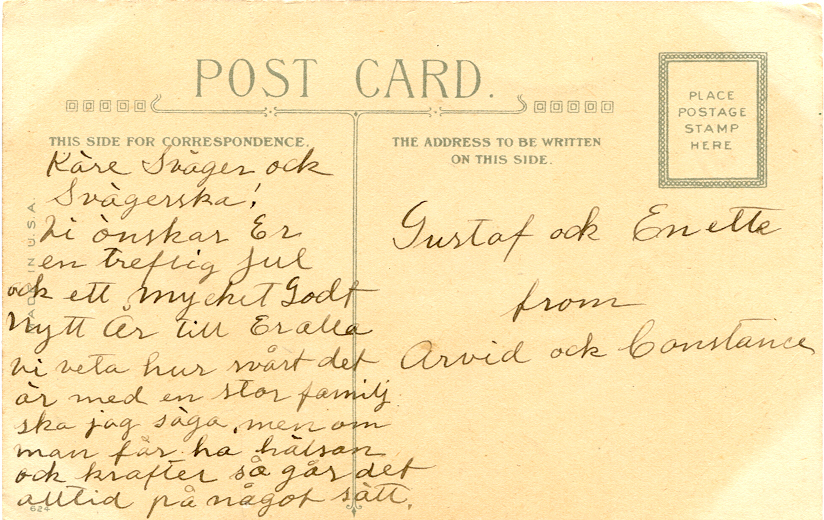 POST CARD.
THIS SIDE FOR CORRESPONDENCE.
THE ADDRESS TO BE WRITTEN
ON THIS SIDE.
PLACE
POSTAGE
STAMP
HERE
MADE IN U.S.A.
Käre Svåger och
Svägerska!
Vi önskar Er
en treflig Jul
och ett mycket Godt
Nytt År till Er alla
vi veta hur svårt det
är med en stor familj
ska jag säga, men om
man får ha hälsan
och krafter så går det
alltid på något sätt.
624
Gustaf och Enette
from
Arvid och Constance